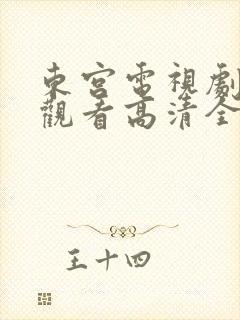 東宮電視劇
觀看高清全
王十四